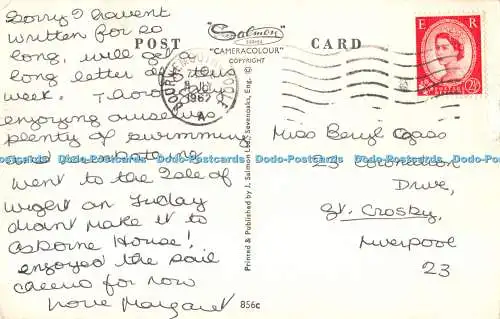 Sorry I havent
written for so
long, will get a
long letter off this
week
enjoying ourselves
plenty of swimming
and sunbathing
went to the Isle of
wight on Friday
didnt make it to
osborne House!
enjoyed the sail
cheerio for now
love Margaret
POST
"Salmon
SERIES
"CAMERACOLOUR"
COPYRIGHT
CARD
BOURNEMOUTH POOLE
1962
A
E R
POSTAGE REVENUE
2½D
Printed & Published by J. Salmon Ltd., Sevenoaks, Eng.
856c
Miss Beryl
23 Coronation
Drive,
Gt. Crosby,
Liverpool
23
Dodo-Postcards Dodo-Postcards Dodo-Postcards Dodo-Postcards Dodo-Postcards Dodo-Postcards